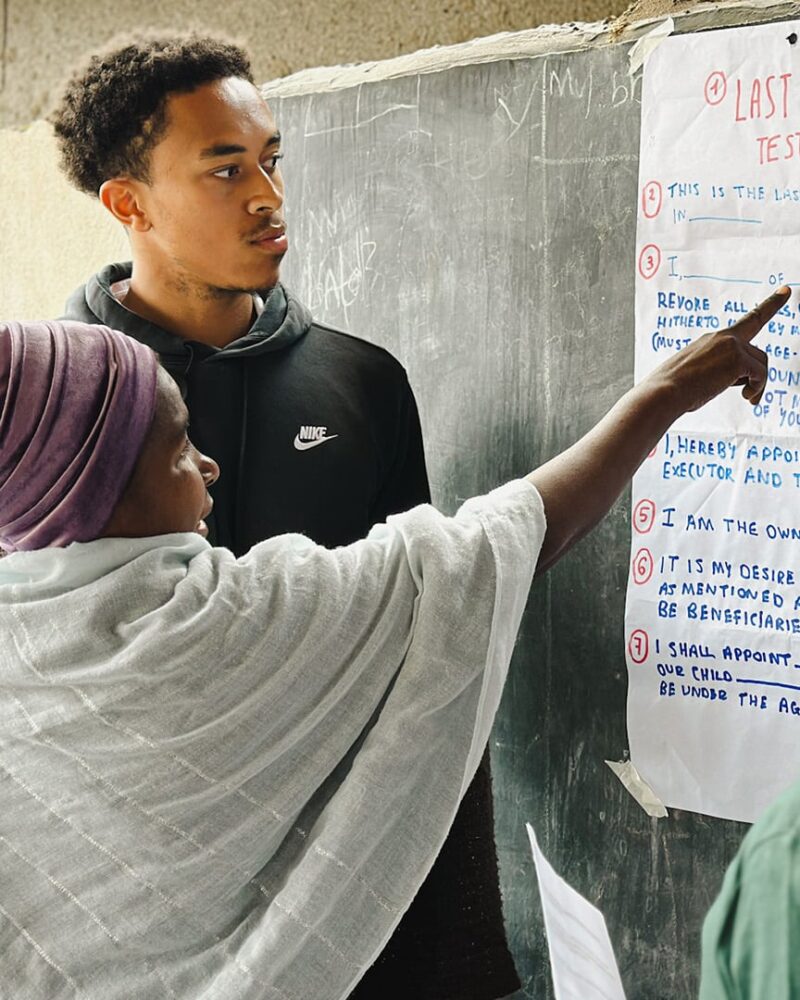 NIKE
My
① LAST
TEST
② THIS IS THE LAS
IN ________
③ I, ________ OF
REVOKE ALL
HITHERTO BY
(MUST AGE-
OUN
OT
OF YOU
I, HEREBY APPOI
EXECUTOR AND T
⑤ I AM THE OWN
⑥ IT IS MY DESIRE
AS MENTIONED A
BE BENEFICIARIE
⑦ I SHALL APPOINT
OUR CHILD ________
BE UNDER THE AG